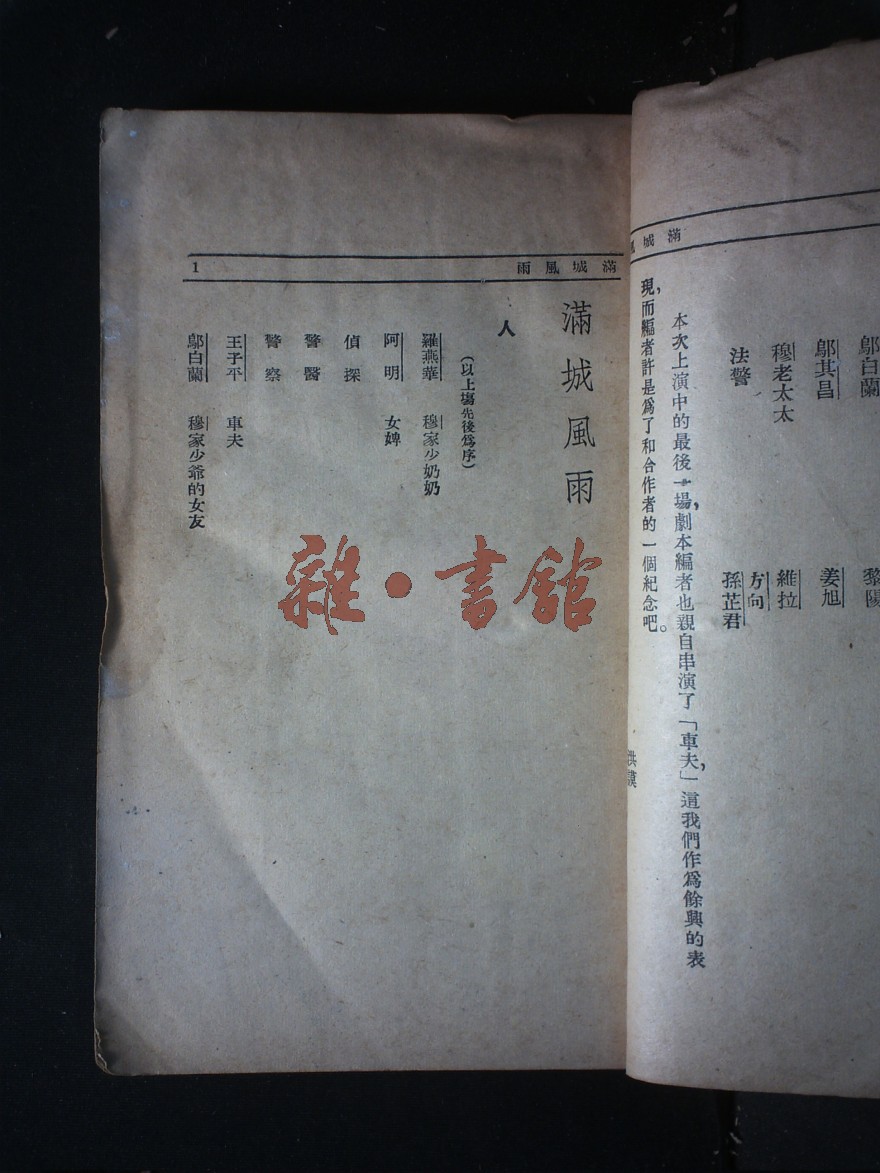 滿城風
鄔白蘭 黎陽
鄔其昌 姜旭
穆老太太 維拉
方向
法警 孫芷君
本次上演中的最後一場，劇本編者也親自串演了「車夫」，這我們作爲餘興的表
現，而編者許是爲了和合作者的一個紀念吧。
洪謨
滿城風雨 1
滿城風雨
人
（以上場先後爲序）
羅燕華 穆家少奶奶
阿明 女婢
偵探
警醫
警察
王子平 車夫
鄔白蘭 穆家少爺的女友
雜·書館